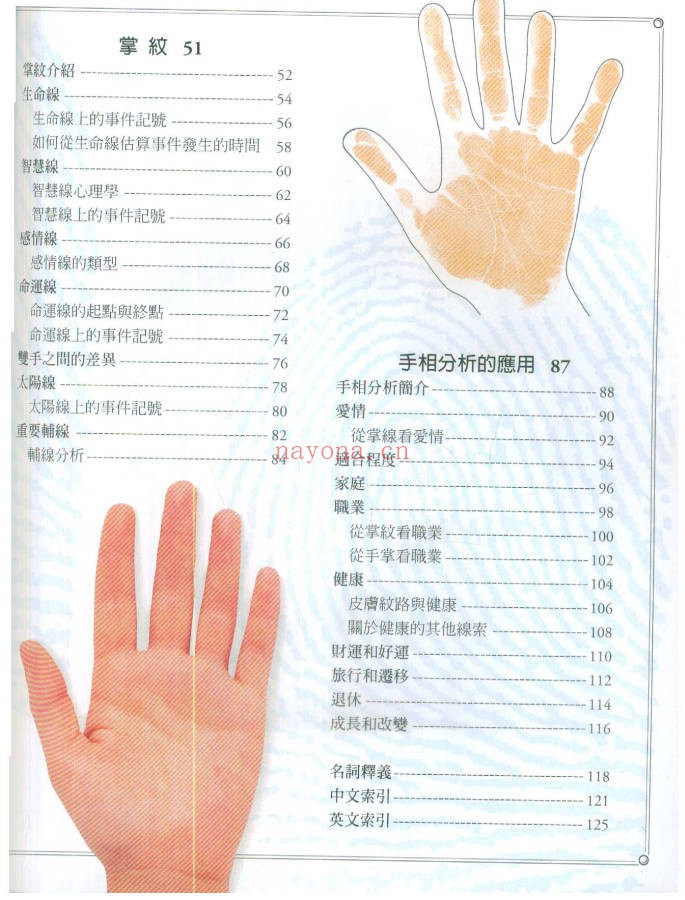 掌紋 51
掌紋介紹 52
生命線 54
生命線上的事件記號 56
如何從生命線估算事件發生的時間 58
智慧線 60
智慧線心理學 62
智慧線上的事件記號 64
感情線 66
感情線的類型 68
命運線 70
命運線的起點與終點 72
命運線上的事件記號 74
雙手之間的差異 76
太陽線 78
太陽線上的事件記號 80
重要輔線 82
輔線分析 84
手相分析的應用 87
手相分析簡介 88
愛情 90
從掌線看愛情 92
適合程度 94
家庭 96
職業 98
從掌紋看職業 100
從手掌看職業 102
健康 104
皮膚紋路與健康 106
關於健康的其他線索 108
財運和好運 110
旅行和遷移 112
退休 114
成長和改變 116
名詞釋義 118
中文索引 121
英文索引 125
nayona.cn